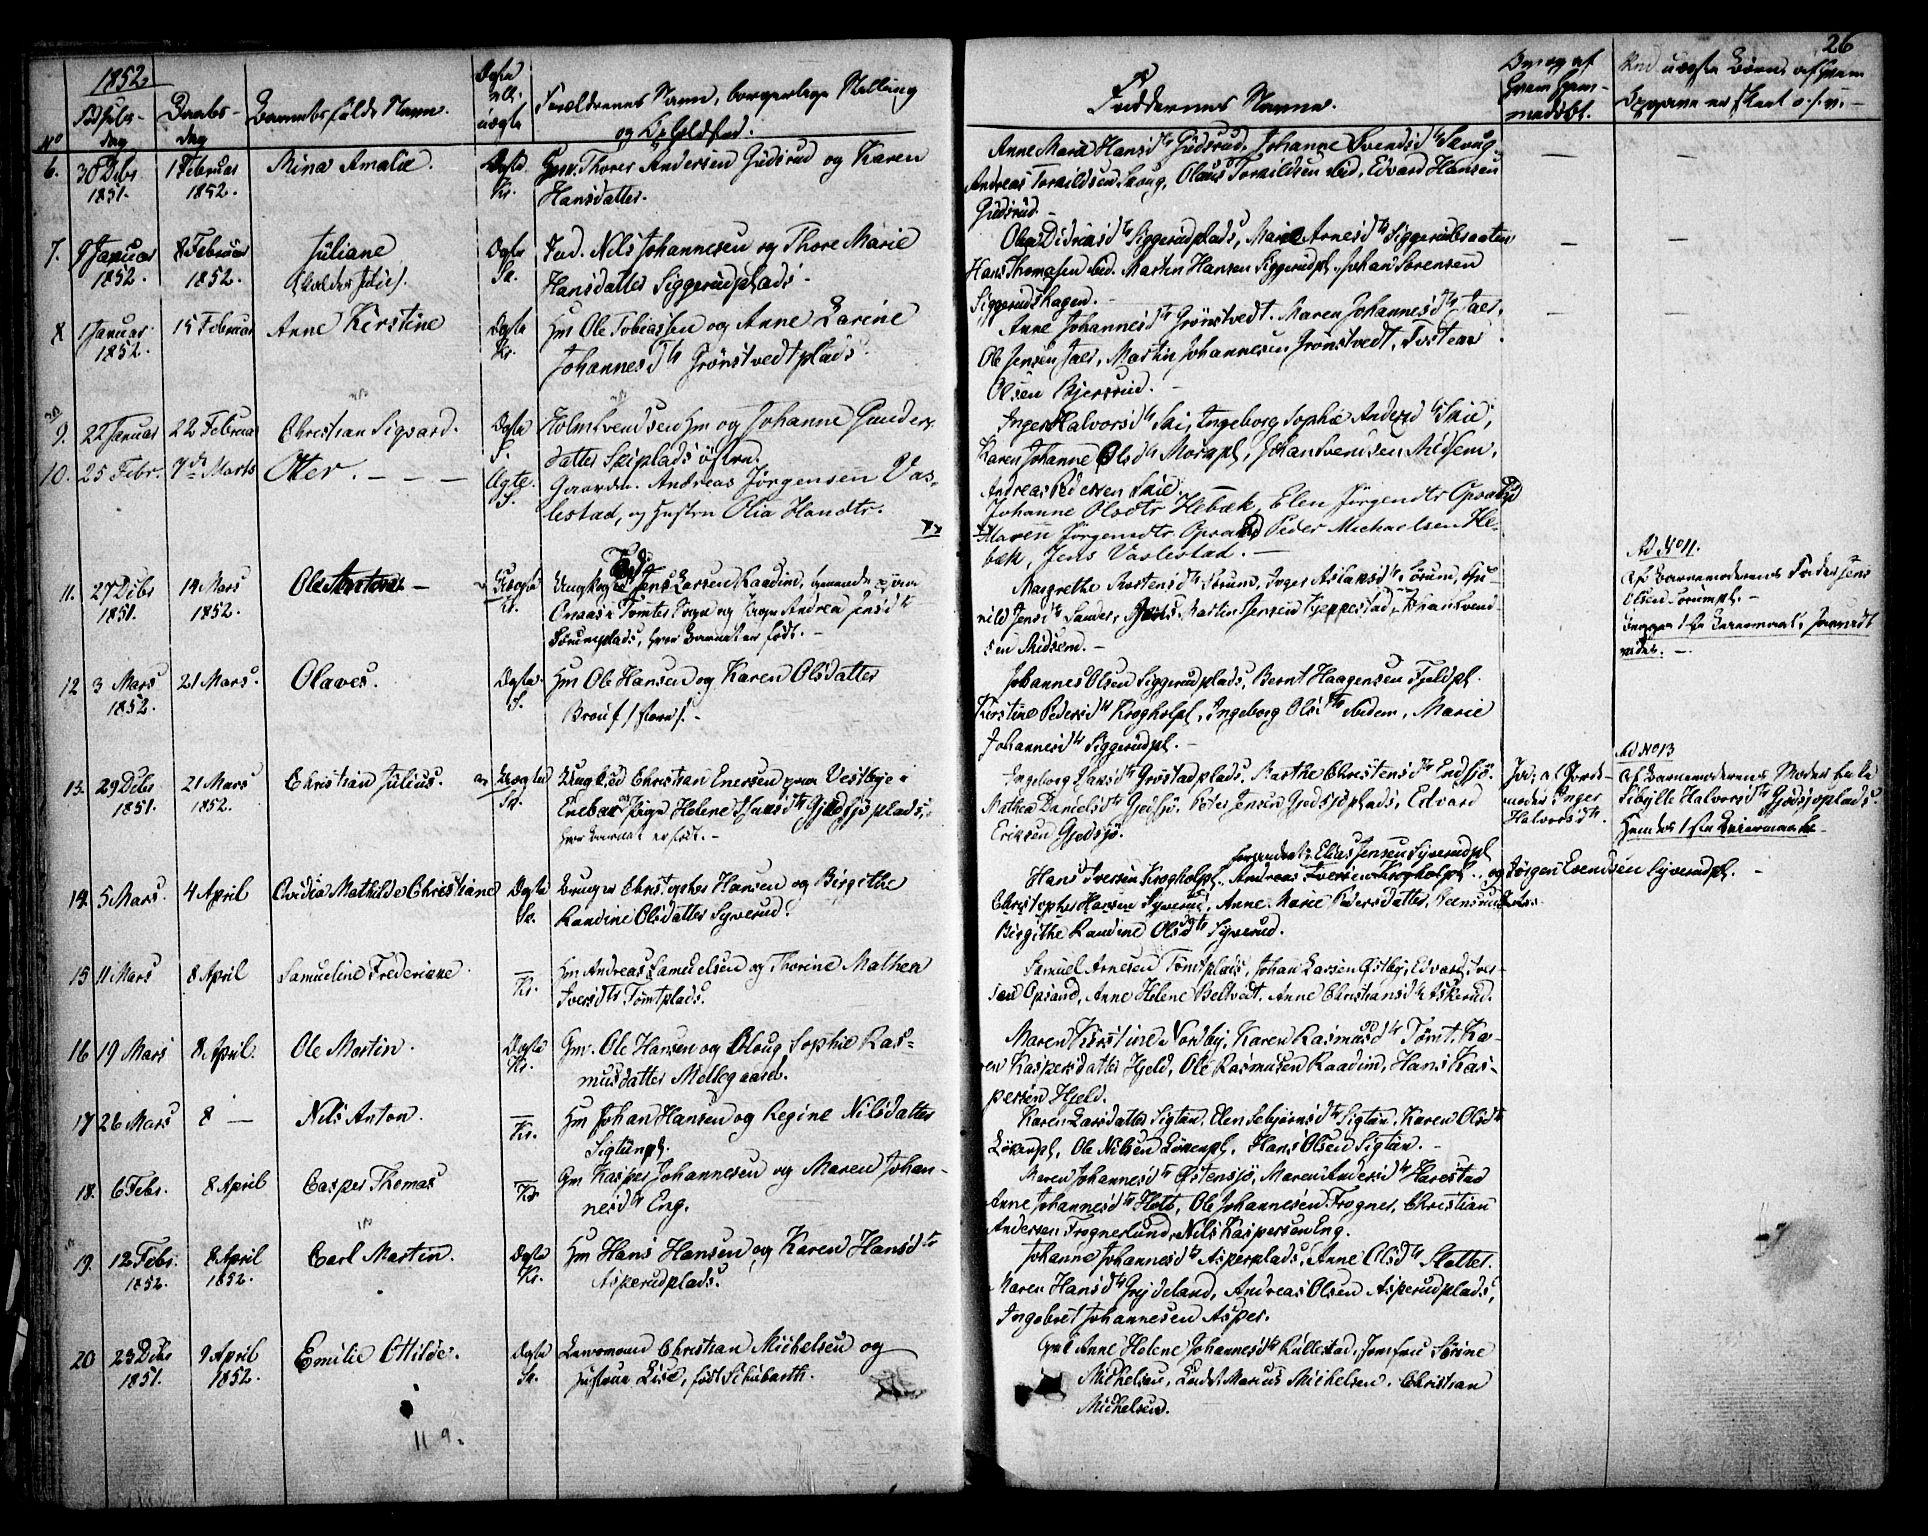 26
1852.
No
Fødsels-
dag
Daabs-
dag
Barnets fulde Navn.
Ægte
ell.
uægte
Forældrenes Navn, borgerlige Stilling
og Opholdsted.
Faddernes Navne.
6.
30 Debr
1851.
1 Februar
1852.
Mina Amalie.
Ægte
Kr.
Gmd. Thorer Andersen Gudsrud og Karen
Hansdatter.
Anne Marie Hansdtr Gudsrud, Johanne Svendsdtr Skoug
Andreas Torkildsen Skoug, Olaus Torkildsen ibid, Edvard Hansen
Gudsrud.
7.
9 Januar
1852.
8 Februar
1852.
Juliane
Ægte
Sk.
Ind. Nils Johannesen og Thore Marie
Hansdatter Siggerudplads.
Olea Didriksdtr Siggerudplads, Marie Arnesdtr Siggerud
Hans Thomasen ibid. Martin Hansen Siggerudpl. Johan Sørensen
Siggerudshagen.
8
1 Januar
1852.
15 Februar
Anne Kirstine
Ægte
Kr.
Hm Ole Tobiassen og Anne Larine
Johannesdtr Grønstvedtplads.
Anne Johannesdtr Grønstvedt. Maren Johannesdtr Taer,
Ole Jensen Taer, Martin Johannesen Grønstvedt, Tosten
Olsen Bjerkrud.
9.
22 Januar
22 Februar
Christian Sigvard.
Ægte
S.
Holm Svendsen Hm og Johanne Gunder-
datter Skiplads østre.
Inger Halvorsdtr Ski, Ingeborg Sophie Andersdtr Skie,
Karen Johanne Olsdtr Morkpl, Johan Svendsen Midsem,
Andreas Pedersen Skie.
10.
25 Febr.
7de Marts
Otter. - - -
Ægte.
S.
Gaardm. Andreas Jørgensen Vas-
lestad, og Hustru Olia Hansdtr.
Johanne Olsdtr Hebæk, Elen Jørgensdtr Opsand
Maren Jørgensdtr Opsand Peder Michaelsen He-
bæk, Jens Vaslestad.
11.
27 Debr
1851.
14 Mars
1852.
Ole
Uægte
Kr.
Ungkarl Jens Larsen Raadim,
Tomter Sogn og Pige Andrea Jensdtr
Sørumplads, hvor Barnet er født.
Margrethe Mortensdtr Krum, Inger Aslaksdtr Sørum, Gu-
nild Jensdtr Sander, Martin Jensen Kjeppestad, Johan Svend-
sen Midsem.
Ad No 11.
Af Barnemoderens Fader Jens
Olsen Sørumpl.
12
3 Mars
1852.
21 Mars.
Olaves.
Ægte
S.
Hm Ole Hansen og Karen Olsdatter
Johannes Olsen Siggerudplads, Bernt Haagensen Fjeldpl.
Kirstine Pedersdtr Krogholpl, Ingeborg Olsdtr ibidem, Marie
Johannesdtr Siggerudpl.
13.
29 Debr
1851.
21 Mars
1852.
Christian Julius.
Uægte
Sk.
Ungkarl Christian Enersen fra Vestbye i
Enebak Pige Helene Hansdtr Gjedsjøplads,
hvor Barnet er født.
Ingeborg Hansdtr Grøstadplads, Marthe Christensdtr Endsjø.
Mathea Danielsdtr Gjedsjø, Peter Jensen Gjedsjøplads, Edvard
Eriksen Gjedsjø.
Ja, af Jorde-
moder Inger
Halvorsdtr.
Ad No 13
Af Barnemoderens Moder
Sibylle Halvorsdtr Gjedsjøplads.
14.
5 Mars.
4 April
Ovidia Mathilde Christiane
Ægte
Sk.
Bruger Christopher Hansen og Birgithe
Randine Olsdatter Syverud.
Elias Jensen Syverudpl
Hans Iversen Krogholpl. Andreas Iversen Krogholpl. og Jørgen Evensen Syverudpl.
Christopher Hansen Syverud, Anne Marie Pedersdatter,
Birgithe Randine Olsdtr Syverud.
15
11 Mars
8 April
Samueline Frederikke
—
Kr.
Hm Andreas Samuelsen og Thorine Mathea
Iversdtr Tømtplads.
Samuel Arnesen Tømtplads, Johan Larsen Østby, Edvard Iver-
sen Opsand, Anne Helene Beltvedt. Anne Christiansdtr Askerud.
16
19 Mars
8 April.
Ole Martin.
Ægte
Kr.
Gm. Ole Hansen og Oloug Sophie Ras-
musdatter Mellegaard.
Maren Kirstine Nordby, Karen Rasmusdtr Tømt, Ka-
ren Kaspersdatter Hjeld, Ole Rasmusen Raadim, Hans Kas-
persen Hjeld.
17
26 Mars
8 —
Nils Anton.
—
Kr.
Hm Johan Hansen og Regine Nilsdatter
Sigtunpl.
Karen Larsdatter Sigtun, Elen Sebjørnsdtr Sigtun, Karen Olsdtr
Løkenpl, Ole Nilsen Løkenpl, Hans Olsen Sigtun.
18.
6 Febr.
8 April
Casper Thomas
—
Kr
Gm Kasper Johannesen og Maren Johan-
nesdtr Eng.
Maren Johannesdtr Østensjø, Maren Andersdtr Harestad
Anne Johannesdtr Holt, Ole Johannesen Frogner, Christian
Andersen Frognerlund, Nils Kaspersen Eng.
19.
12 Febr.
1852.
8 April
1852.
Carl Martin.
Ægte
Kr.
Hm Hans Hansen og Karen Hansdtr
Asperudplads.
Johanne Johannesdtr Asperplads, Anne Olsdtr Slottet.
Maren Hansdtr Grydeland, Andreas Olsen Asperudplads,
Ingebret Johannesen Asper.
20
23 Debr
1851.
9 April
1852.
Emilie Ottilde.
Ægte
Sk.
Lensmand Christian Michelsen og
Hustrue Lise, født Schubarth.
Anne Helene Johannesdtr Kullestad, Jomfru Sørine
Michelsen, Marius Michelsen, Christian
Michelsen.
11 9.